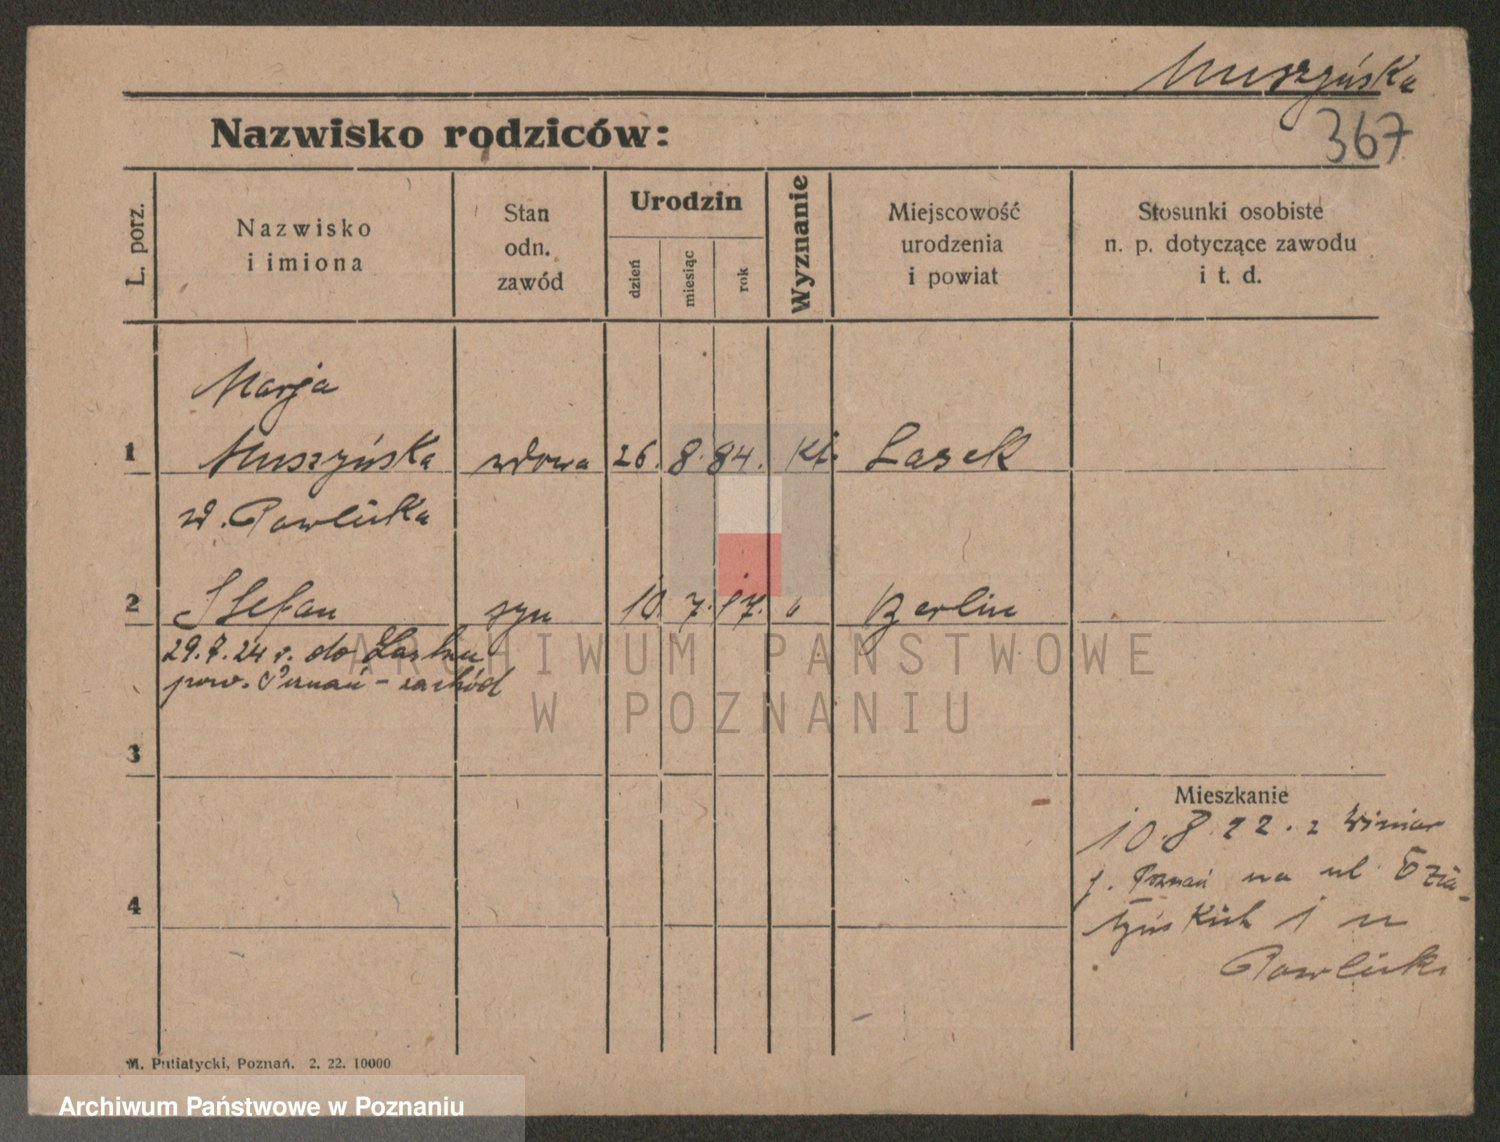 Muszyńska
367
Nazwisko rodziców:
L. porz.
Nazwisko
i imiona
Stan
odn.
zawód
Urodzin
dzień
miesiąc
rok
Wyznanie
Miejscowość
urodzenia
i powiat
Stosunki osobiste
n. p. dotyczące zawodu
i t. d.
Marja
1 Muszyńska wdowa 26. 8. 84. kt. Lasek
w. Pawlicka
2 Stefan syn 10. 7. 17. " Berlin
29.7.24 r. do Lasku
pow. Poznań - zachód
ARCHIWUM PAŃSTWOWE
W POZNANIU
3
Mieszkanie
10.8.22. z Winiar
p. Poznań na ul
4
1 u
Pawlicki
M. Putiatycki, Poznań. 2. 22. 10000
Archiwum Państwowe w Poznaniu